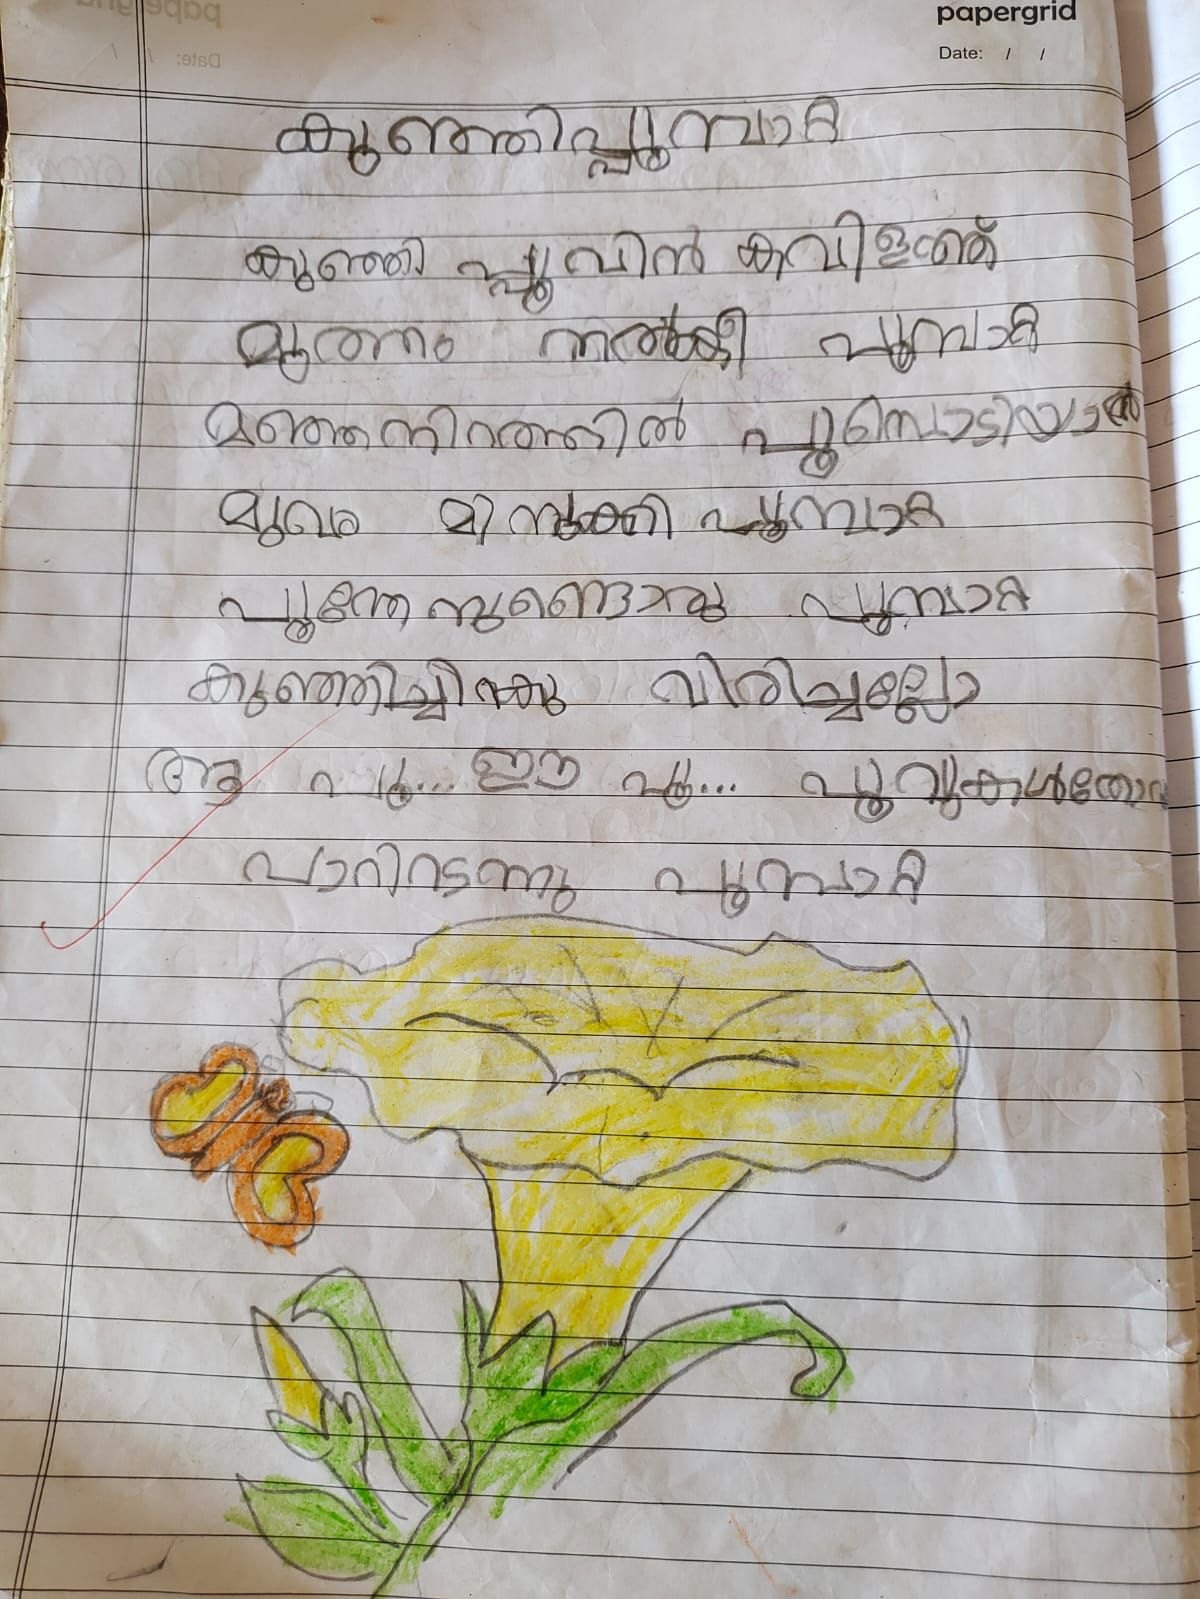 papergrid
Date: / /
കുഞ്ഞിപ്പൂമ്പാറ്റ
കുഞ്ഞി പ്പൂവിൻ കവിളത്ത്
മുത്തം നൽകി പൂമ്പാറ്റ
മഞ്ഞനിറത്തിൽ പൂമ്പൊടിയാൽ
മുഖം മിനുക്കി പൂമ്പാറ്റ
പൂന്തേനുണ്ടൊരു പൂമ്പാറ്റ
കുഞ്ഞിച്ചിറകു വിരിച്ചല്ലോ
ആ പൂ... ഈ പൂ... പൂവുകൾതോറും
പാറിനടന്നു പൂമ്പാറ്റ